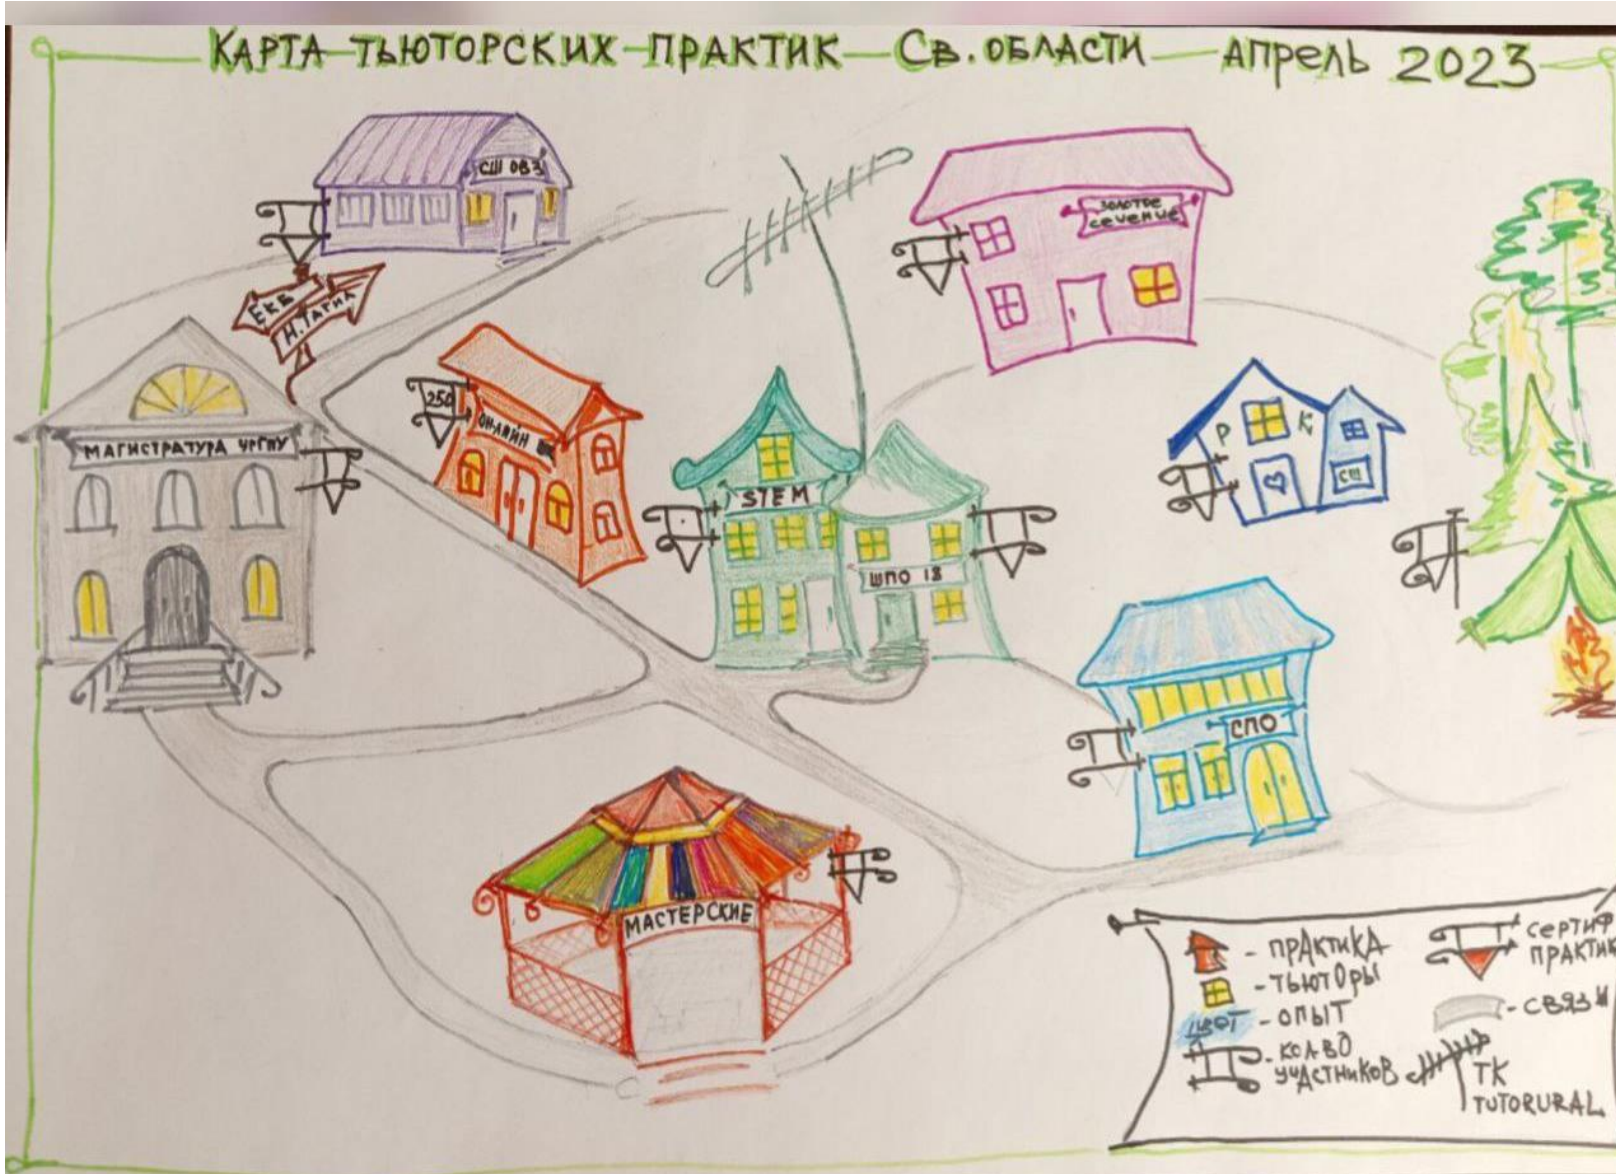 КАРТА ТЬЮТОРСКИХ ПРАКТИК СВ. ОБЛАСТИ АПРЕЛЬ 2023
СШ ОВЗ
ЗОЛОТОЕ
СЕЧЕНИЕ
ЕКБ
Н. ТАГИЛ
МАГИСТРАТУРА УРГПУ
250
ОН-ЛАЙН
STEM
ШПО 18
Р К
СШ
СПО
МАСТЕРСКИЕ
- ПРАКТИКА
- ТЬЮТОРЫ
ЦВЕТ - ОПЫТ
- КОЛ-ВО
УЧАСТНИКОВ
СЕРТИФ
ПРАКТИК
- СВЯЗИ
ТК
TUTORURAL